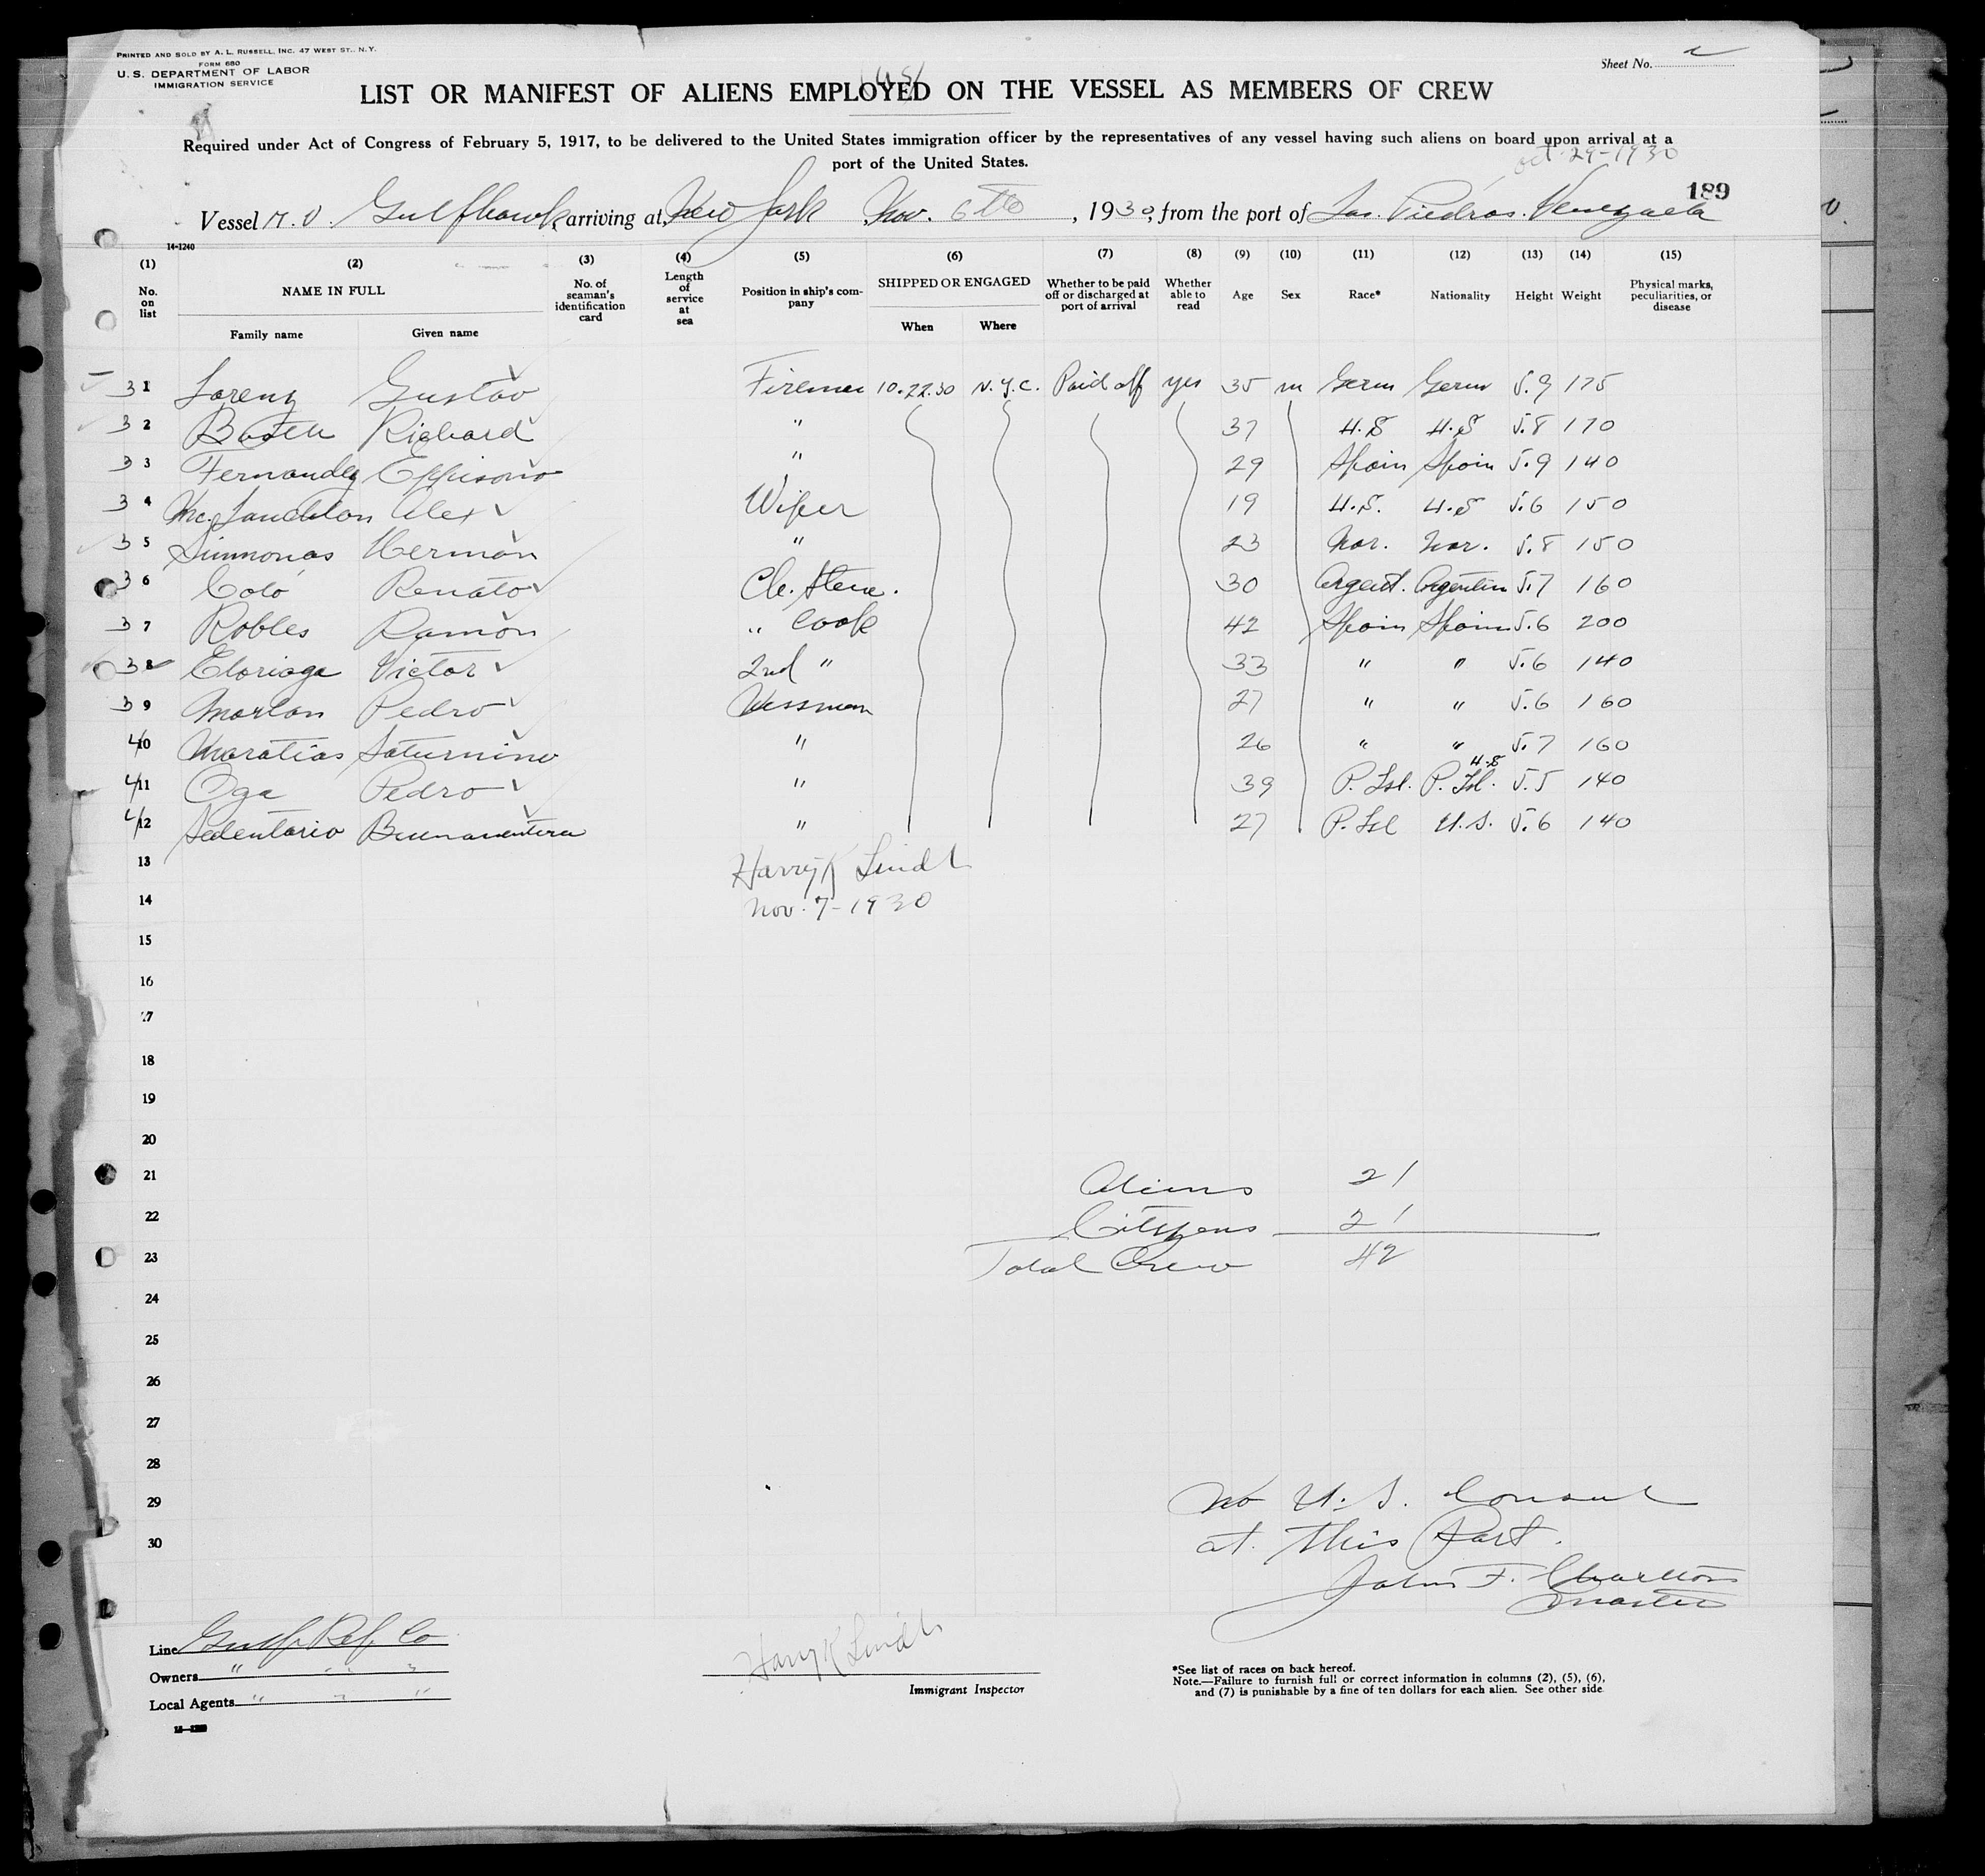 PRINTED AND SOLD BY A. L. RUSSELL, INC. 47 WEST ST., N.Y.
FORM 680
U. S. DEPARTMENT OF LABOR
IMMIGRATION SERVICE
Sheet No. 2
LIST OR MANIFEST OF ALIENS EMPLOYED ON THE VESSEL AS MEMBERS OF CREW
Required under Act of Congress of February 5, 1917, to be delivered to the United States immigration officer by the representatives of any vessel having such aliens on board upon arrival at a
port of the United States.
Oct. 29-1930
189
Vessel M.V. Gulfhawk, arriving at, New York, Nov. 6th, 1930, from the port of Las Piedras. Venezuela
14-1240
(1) (2) (3) (4) (5) (6) (7) (8) (9) (10) (11) (12) (13) (14) (15)
No. on list NAME IN FULL No. of seaman's identification card Length of service at sea Position in ship's company SHIPPED OR ENGAGED Whether to be paid off or discharged at port of arrival Whether able to read Age Sex Race* Nationality Height Weight Physical marks, peculiarities, or disease
Family name Given name When Where
3 1 Lorenz Gustav Fireman 10.22.30 N.Y.C. Paid off yes 35 m Germ Germ 5.9 175
3 2 Richard " 37 U.S U.S 5.8 170
3 3 Fernandez " 29 Spain Spain 5.9 140
3 4 Alex Wiper 19 U.S. U.S 5.6 150
3 5 Simmonas Herman " 23 Nor. Nor. 5.8 150
3 6 Coló Renato Ch. Stew. 30 Argent. Argentin 5.7 160
3 7 Robles Ramon " Cook 42 Spain Spain 5.6 200
3 8 Eloriaga Victor 2nd " 33 " " 5.6 140
3 9 Morlan Pedro Messman 27 " " 5.6 160
4 10 Maratias Saturnino " 26 " " 5.7 160
U.S
4 11 Oga Pedro " 39 P. Isl. P. Isl. 5.5 140
4 12 Sedentario Buenaventura " 27 P. Isl U.S. 5.6 140
13 Harry K Lindt
14 Nov. 7-1930
15
16
17
18
19
20
21 Aliens 21
22 Citizens 21
23 Total Crew 42
24
25
26
27
28
29 No U.S. Consul
30 at this Port.
John F. Charlton
Master
Line Gulf Ref. Co
Owners " " "
Local Agents " " "
Harry K Lindt
Immigrant Inspector
*See list of races on back hereof.
Note.—Failure to furnish full or correct information in columns (2), (5), (6),
and (7) is punishable by a fine of ten dollars for each alien. See other side